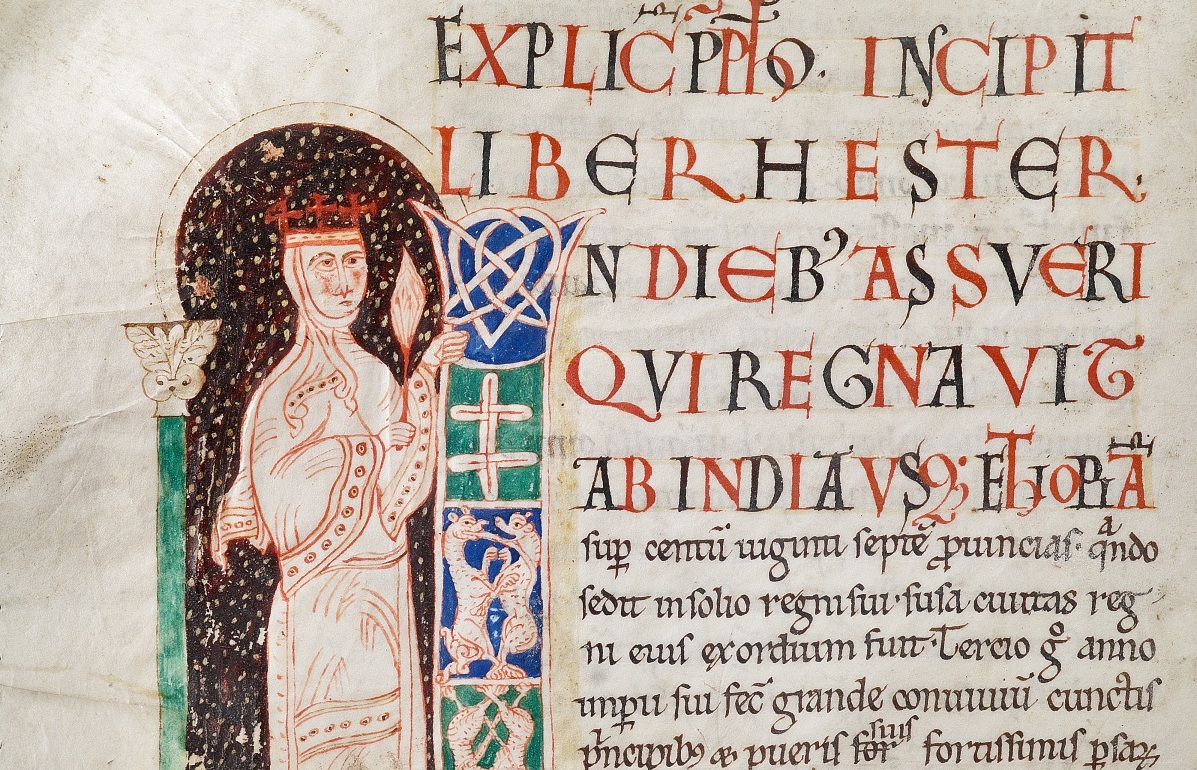 EXPLIC̄ PP̄hO. INCIPIT
LIBER HESTER.
IN DIEB’ ASSVERI
QVI REGNAVIT
AB INDIA VSQ; EThIOPIĀ
suꝑ centū uiginti septē ꝓuincias. qᵃndo
sedit in solio regni sui. susa ciuitas reg
ni eius exordium fuit. Tercio gͦ anno
imꝑii sui fec̄ grande conuiuiū cunctis
pⁱncipibꝫ & pueris suis fortissimis ꝑsaꝝ